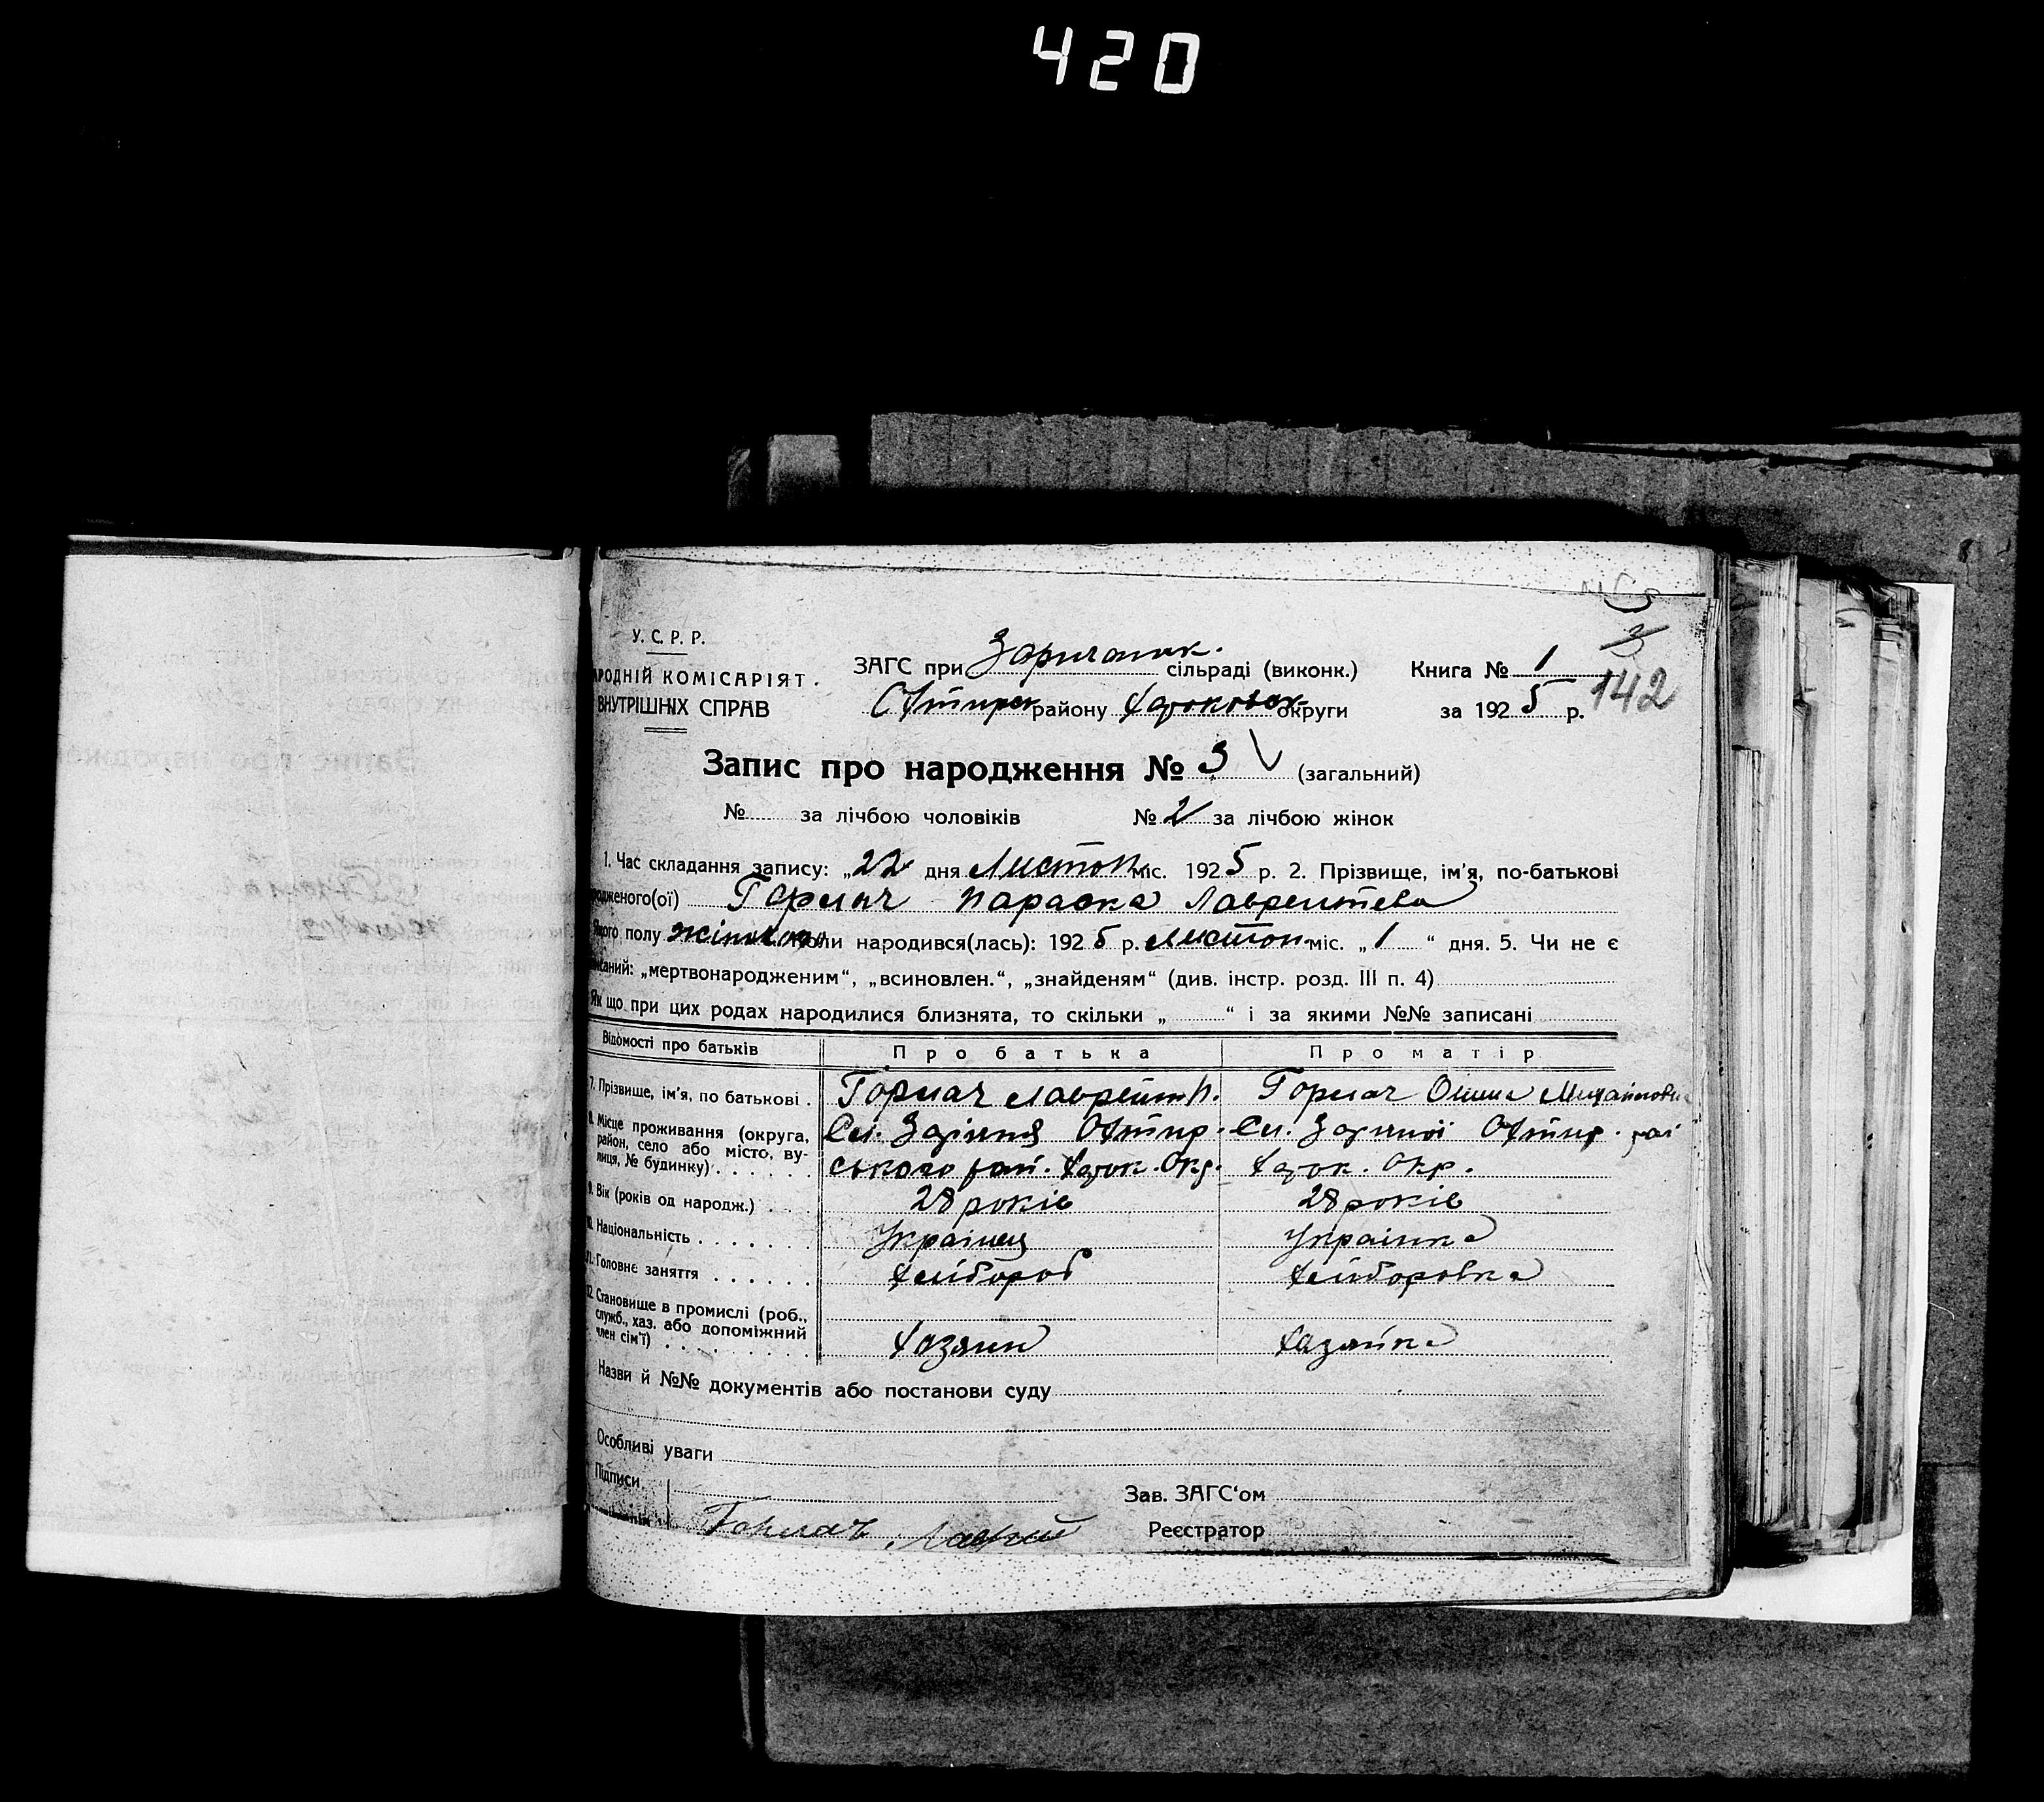 420
3
142
У. С. Р. Р.
РОДНІЙ КОМІСАРІЯТ.
ВНУТРІШНІХ СПРАВ
ЗАГС при сільраді (виконк.) Книга № 1
району округи за 1925 р.
Запис про народження № 3 (загальний)
№ за лічбою чоловіків № 2 за лічбою жінок
1. Час складання запису: „22 дня Листоп. міс. 1925 р. 2. Прізвище, ім'я, по-батькові
одженого(ої) Гормач Параска Лаврентева
полу жіночого Коли народився(лась): 1925 р. листоп. міс. „1“ дня. 5. Чи не є
„мертвонародженим“, „всиновлен.“, „знайденям“ (див. інстр. розд. III п. 4)
Як що при цих родах народилися близнята, то скільки „ “ і за якими №№ записані
Відомості про батьків Про батька Про матір
7. Прізвище, ім'я, по батькові . Гормач Гормач
8. Місце проживання (округа, Сл. Сл.
район, село або місто, ву-
лиця, № будинку) . . . . . ського Окр. Окр.
9. Вік (років од народж.) . . . 28 років 28 років
10. Національність . . . . . . . Українец Українка
11. Головне заняття . . . . . . Хлібороб Хліборобка
12. Становище в промислі (роб.,
служб., хаз. або допоміжний
член сім'ї) . . . . . . . . . Хазяин Хазяйка
Назви й №№ документів або постанови суду
Особливі уваги
Підписи Зав. ЗАГС'ом
Гормач Реєстратор